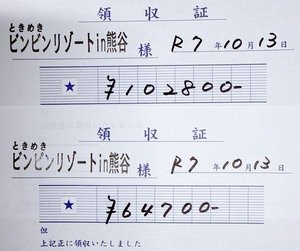 領収証
ときめき
ビンビンリゾートin熊谷 様 R7年10月13日
★ ¥102800-
領収証
ときめき
ビンビンリゾートin熊谷 様 R7年10月13日
★ ¥64700-
但
上記正に領収いたしました